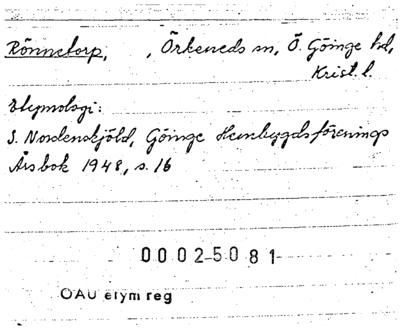 Rönnetorp, , Örkeneds sn, Ö. Göinge hd,
Krist. l.
Etymologi:
S. Nordenskjöld, Göinge Hembygdsförenings
Årsbok 1948, s. 16
00025081
OAU etym reg